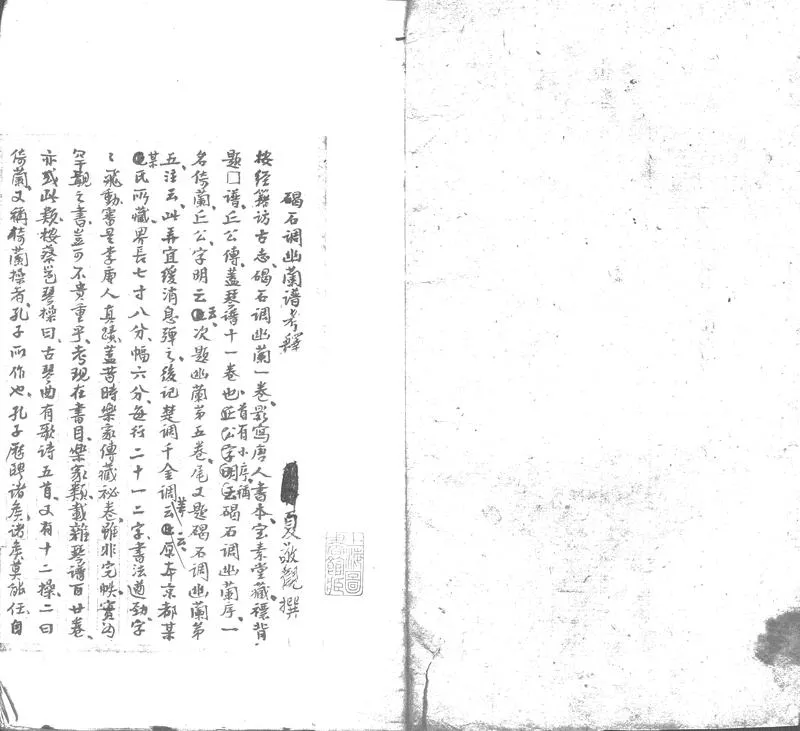 碣石调幽蘭譜考釋
夏敬觀撰
按經籍訪古志、碣石调幽蘭一卷、影寫唐人書本、宝素堂藏、褾背
題□譜、丘公傳、盖琴譜十一卷也、首有小序、稱
名倚蘭、丘公字明云云、次題幽蘭苐五、卷尾又題碣石调幽蘭苐
五、注云、此弄宜缓消息彈之、後记楚调千金调云云、原本京都某
某氏所藏、界長七寸八分、幅六分、每行二十一二字、書法遒劲、字
〻飛動、審是李唐人真蹟、盖昔時樂家傳藏祕卷、雖非完帙、實
罕覯之書、豈可不贵重乎、考現在書目、樂家類、載雜琴譜百廿卷、
亦或此類、按蔡邕琴操曰、古琴曲有歌诗五首、又有十二操、二曰
倚蘭、又稱猗蘭操者、孔子所作也、孔子歷聘诸矦、诸矦莫能任、自
上海圖書館藏